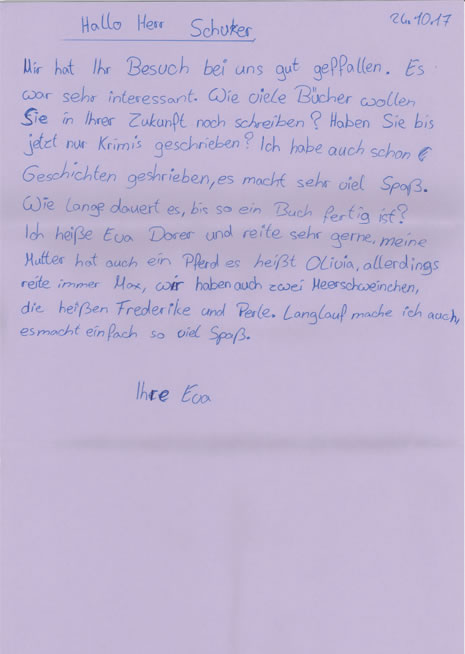 26.10.17
Hallo Herr Schuker
Mir hat Ihr Besuch bei uns gut geffallen. Es
war sehr interessant. Wie viele Bücher wollen
Sie in Ihrer Zukunft noch schreiben? Haben Sie bis
jetzt nur Krimis geschrieben? Ich habe auch schon
Geschichten geshrieben, es macht sehr viel Spaß.
Wie lange dauert es, bis so ein Buch fertig ist?
Ich heiße Eva Dorer und reite sehr gerne, meine
Mutter hat auch ein Pferd es heißt Olivia, allerdings
reite immer Max, wir haben auch zwei Meerschweinchen,
die heißen Frederike und Perle. Langlauf mache ich auch,
es macht einfach so viel Spaß.
Ihre Eva